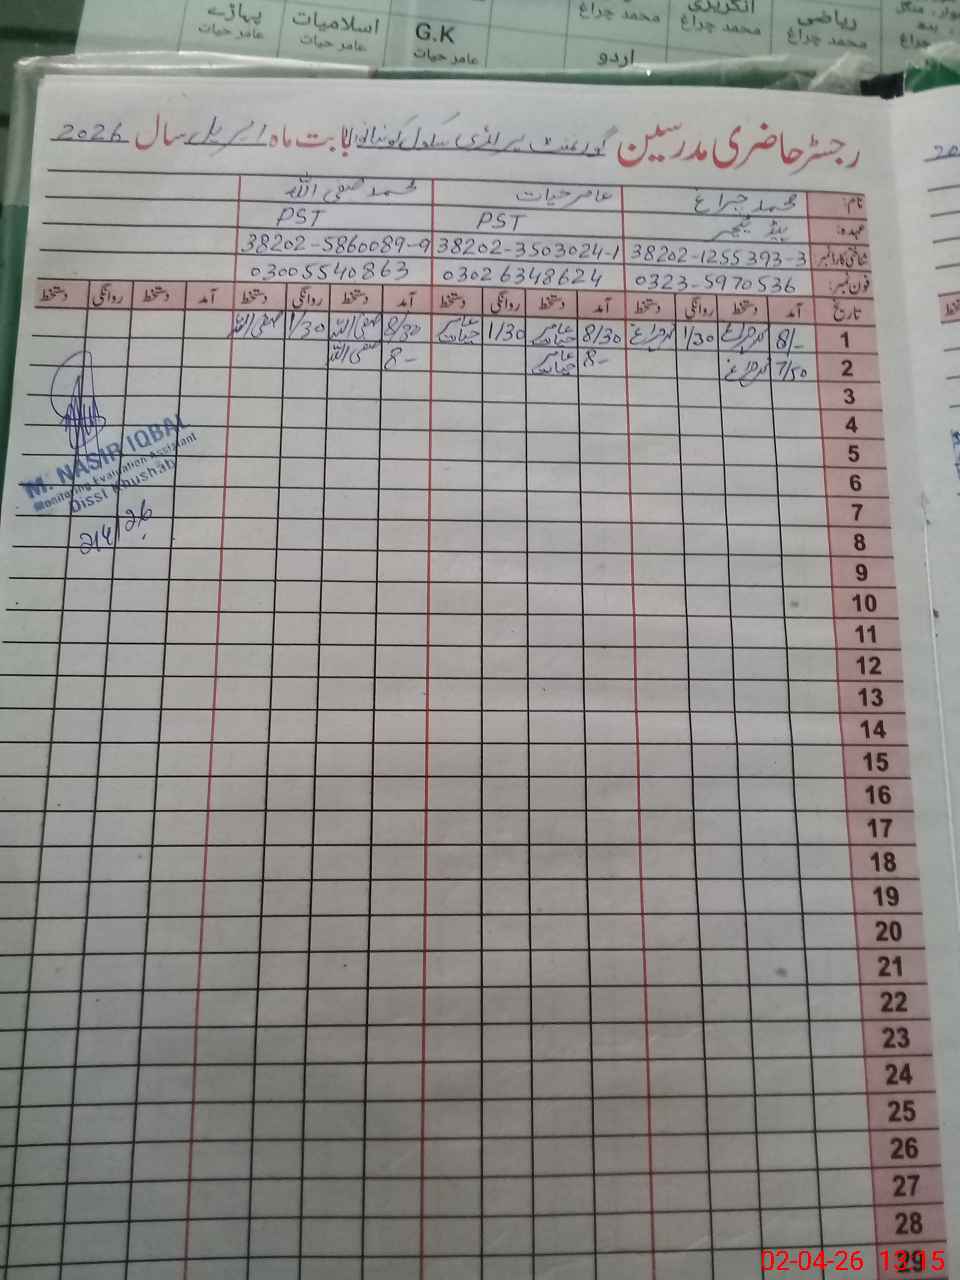 پہاڑے
عامر حیات
اسلامیات
عامر حیات
G.K
عامر حیات
محمد چراغ
اردو
انگریزی
محمد چراغ
ریاضی
محمد چراغ
رجسٹر حاضری مدرسین گورنمنٹ پرائمری سکول بابت ماہ اپریل سال 2026
نام: محمد چراغ عامر حیات محمد صفی اللہ
عہدہ: ہیڈ ٹیچر PST PST
شناختی کارڈ نمبر 38202-1255393-3 38202-3503024-1 38202-5860089-9
فون نمبر: 0323-5970536 03026348624 03005540863
تاریخ آمد دستخط روانگی دستخط آمد دستخط روانگی دستخط آمد دستخط روانگی دستخط آمد دستخط روانگی دستخط
1 8/- محمد چراغ 1/30 محمد چراغ 8/30 عامر حیات 1/30 عامر حیات 8/30 صفی اللہ 1/30 صفی اللہ
2 7/50 محمد چراغ 8- عامر حیات 8- صفی اللہ
3
4
5
6
7
8
9
10
11
12
13
14
15
16
17
18
19
20
21
22
23
24
25
26
27
28
29
M. NASIR IQBAL
Monitoring Evaluation Assistant
Disst Khushab
2/4/26
02-04-26 13:15